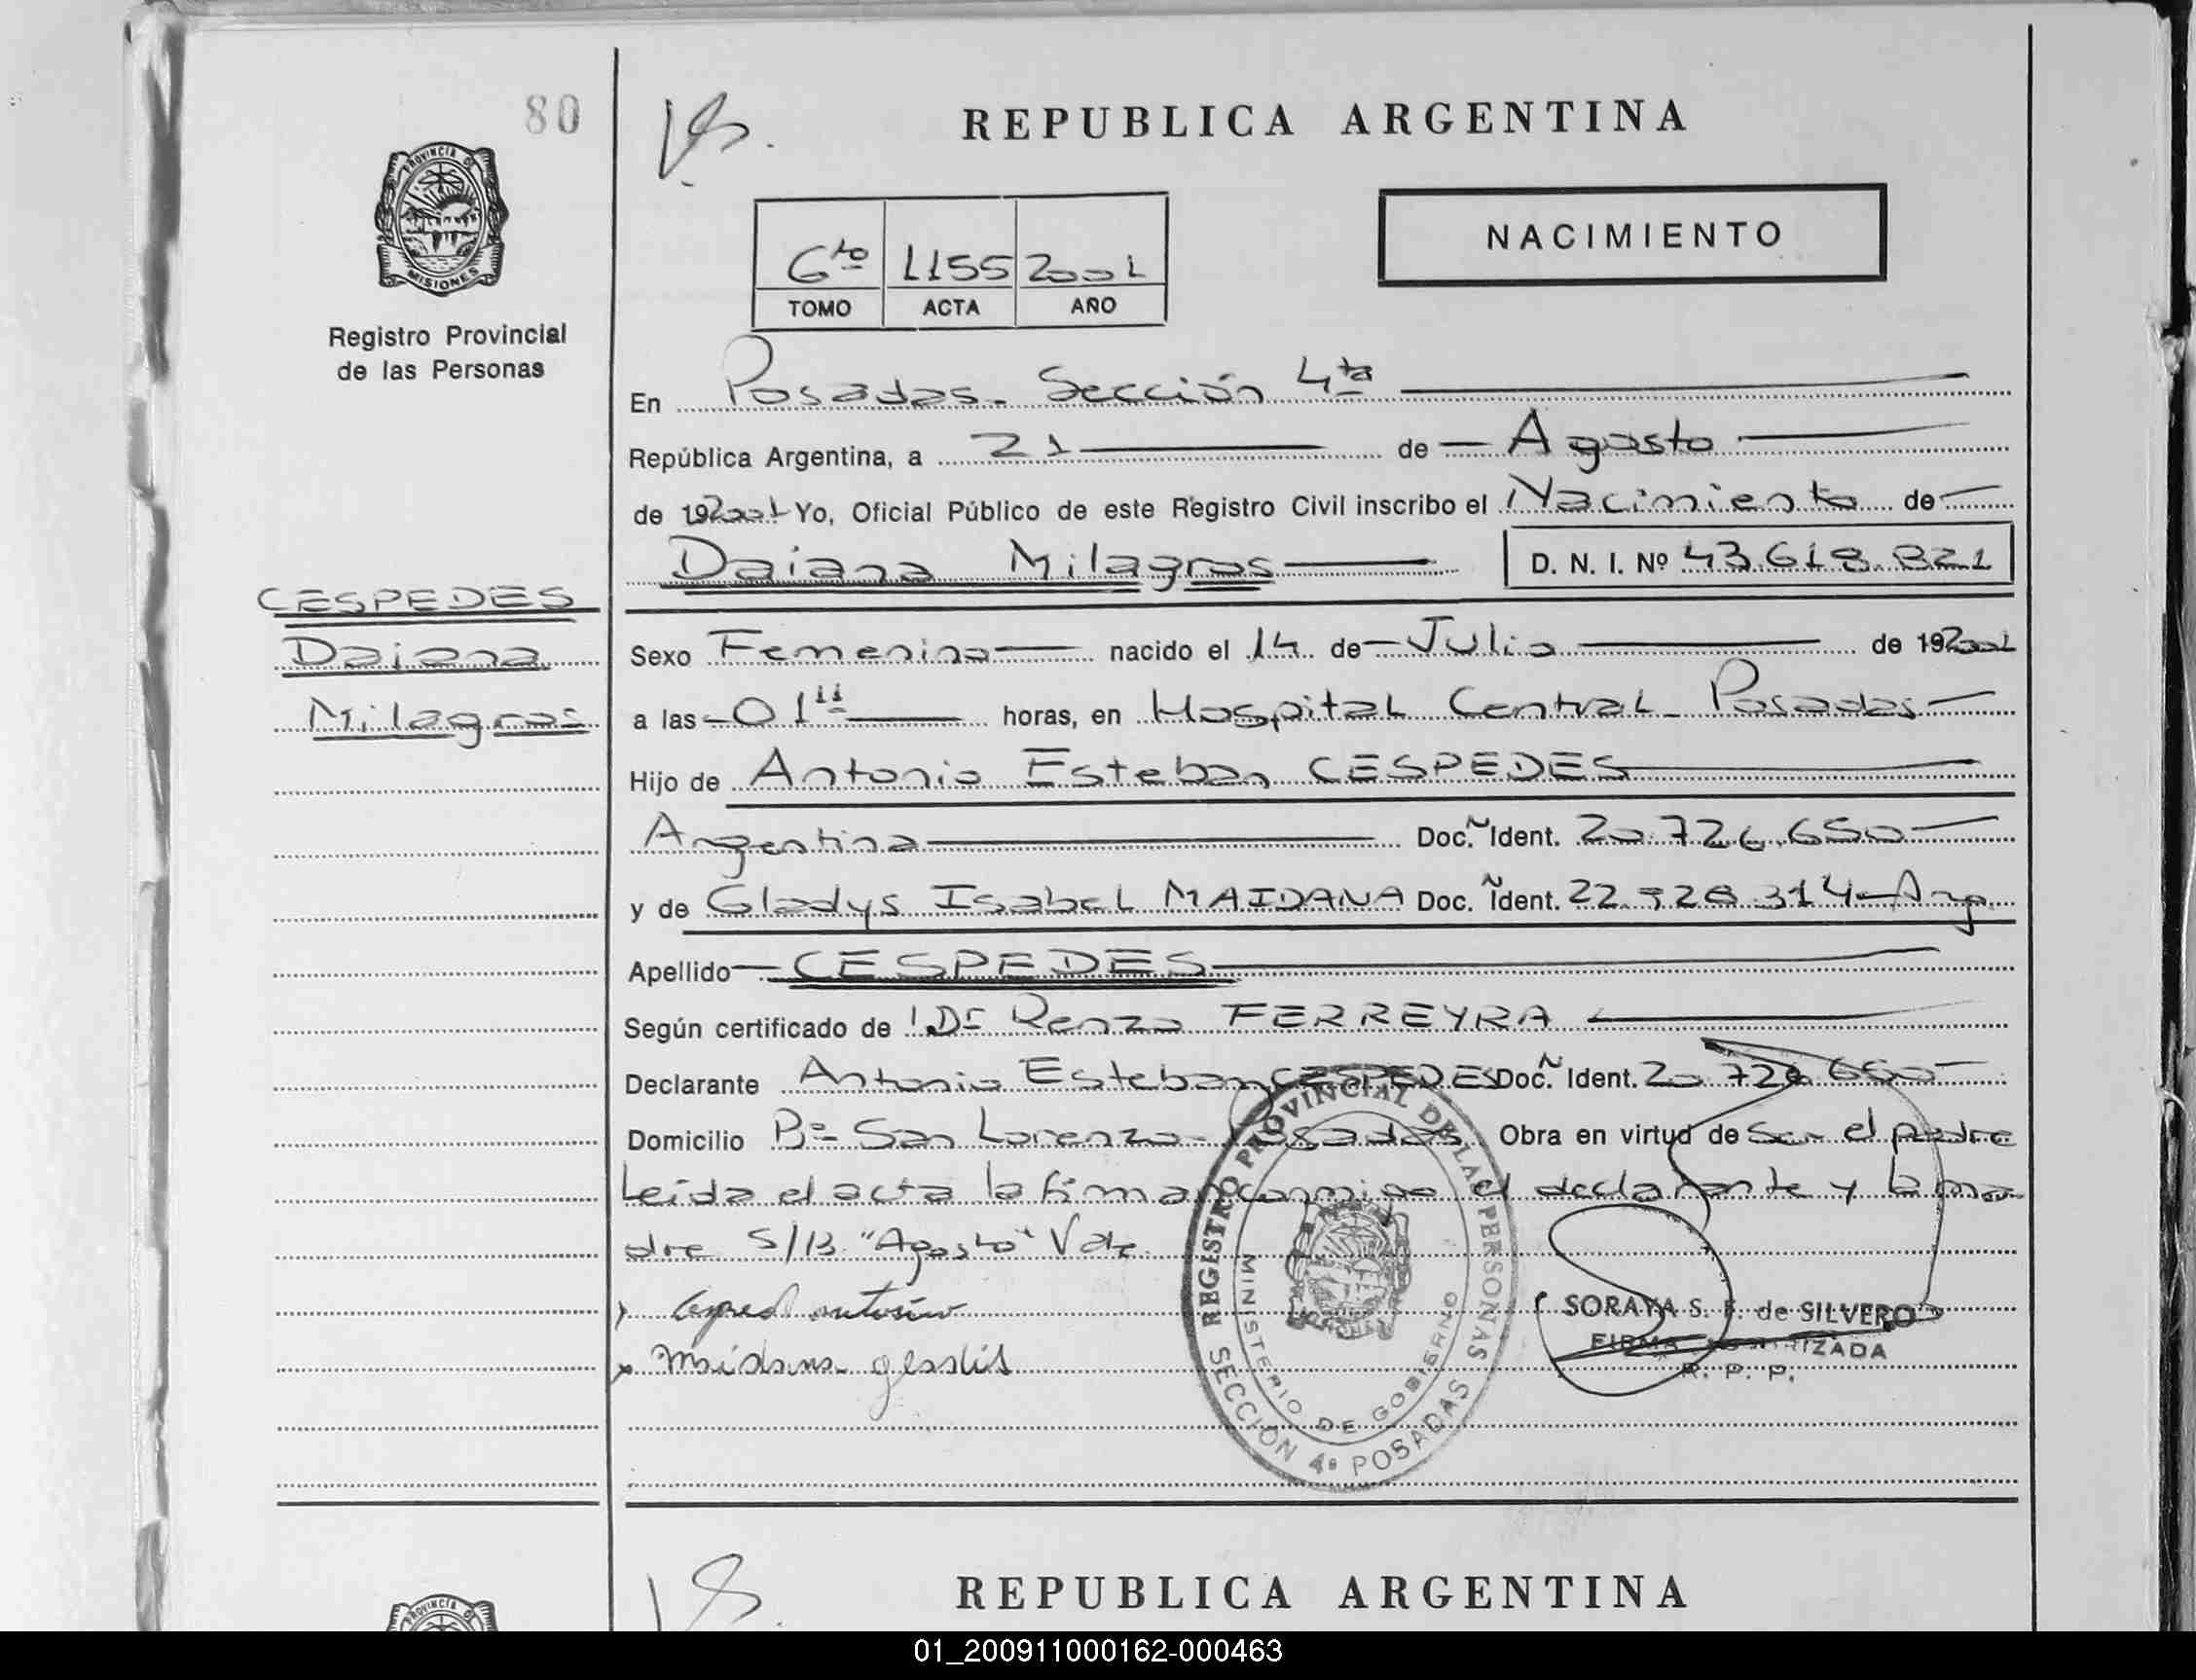 80
Vs.
REPUBLICA ARGENTINA
PROVINCIA DE MISIONES
NACIMIENTO
6to 1155 2001
TOMO ACTA AÑO
Registro Provincial
de las Personas
En Posadas. Sección 4ta
República Argentina, a 21 de Agosto
de 192001 Yo, Oficial Público de este Registro Civil inscribo el Nacimiento de
Daiana Milagros D. N. I. Nº 43.618.821
CESPEDES
Daiana
Milagros
Sexo Femenino nacido el 14 de Julio de 192001
a las 01 horas, en Hospital Central Posadas
Hijo de Antonio Esteban CESPEDES
Argentina Doc. Ident. 20.726.650
y de Gladys Isabel MAIDANA Doc. Ident. 22.928.314 Arg.
Apellido CESPEDES
Según certificado de Dr Renzo FERREYRA
Declarante Antonio Esteban CESPEDES Doc. Ident. 20.726.650
Domicilio Bº San Lorenzo Posadas Obra en virtud de ser el padre
Leida el acta la firman conmigo el declarante y la ma
dre S/B "Agosto" Vale
Maidana
REGISTRO PROVINCIAL DE LAS PERSONAS
MINISTERIO DE GOBIERNO
SECCIÓN 4ª POSADAS
SORAYA S. F. de SILVERO
FIRMA AUTORIZADA
R. P. P.
REPUBLICA ARGENTINA
PROVINCIA DE
01_200911000162-000463